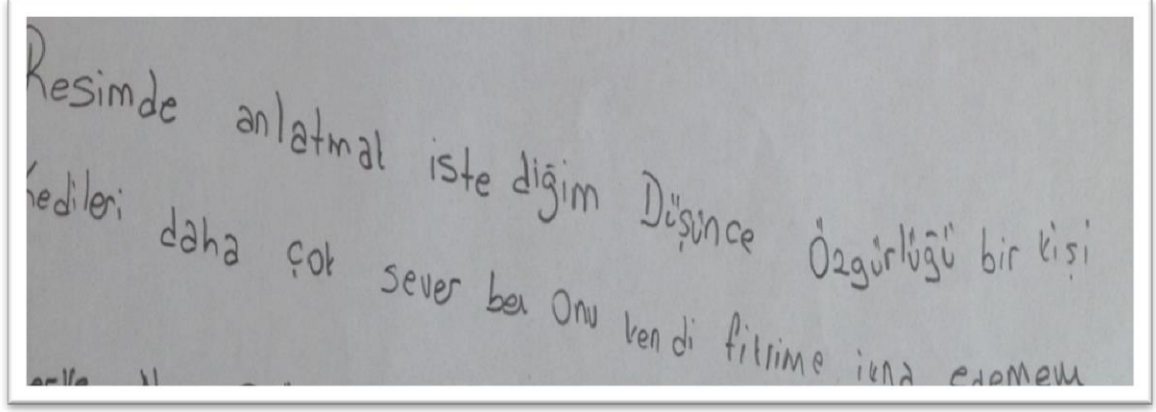 Resimde anlatmak istediğim Düşünce Özgürlüğü bir kişi
kedileri daha çok sever ben onu kendi fikrime ikna edemem